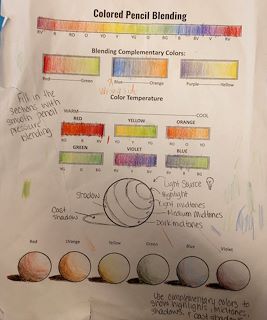 Colored Pencil Blending
RV R RO O YO Y YG G BG B BV V RV
Blending Complementary Colors:
Red Green Blue Orange Purple Yellow
Fill in the
sections with
smooth pencil
pressure
blending
Color Temperature
WARM COOL
RED YELLOW ORANGE
RV R RO YO Y YG RO O YO
GREEN VIOLET BLUE
YG G BG BV V RV BG B BV
Light Source
Highlight
Light midtones
Medium midtones
Dark midtones
Shadow
Cast
shadow
Red Orange Yellow Green Blue Violet
Use complementary colors to
show highlights, midtones,
shadows, & cast shadows